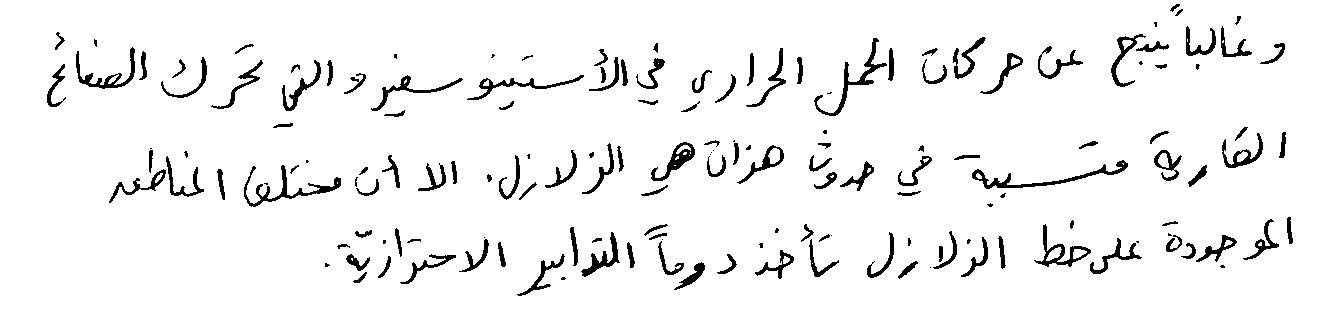 وغالباً ينتج عن حركات الحمل الحراري في الأستينوسفير والتي تحرك الصفائح
القارية متسببة في حدوث هزات هي الزلازل. الا أن مختلف المناطق
الموجودة على خط الزلازل تأخذ دوماً التدابير الاحترازيّة.